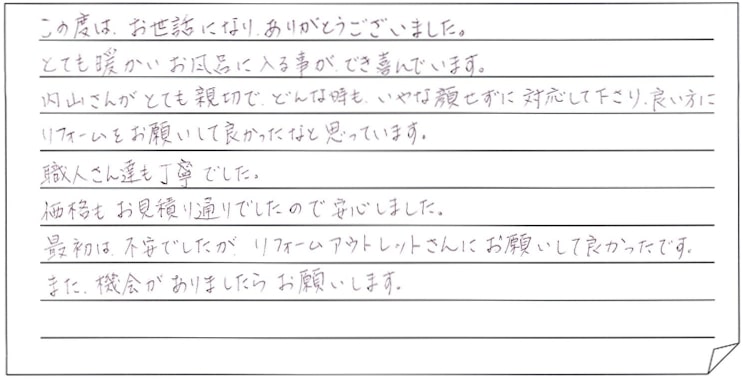 この度は、お世話になり、ありがとうございました。
とても暖かいお風呂に入る事ができ喜んでいます。
内山さんがとても親切で、どんな時も、いやな顔せずに対応して下さり、良い方に
リフォームをお願いして良かったなと思っています。
職人さん達も丁寧でした。
価格もお見積り通りでしたので安心しました。
最初は、不安でしたが、リフォームアウトレットさんにお願いして良かったです。
また、機会がありましたらお願いします。